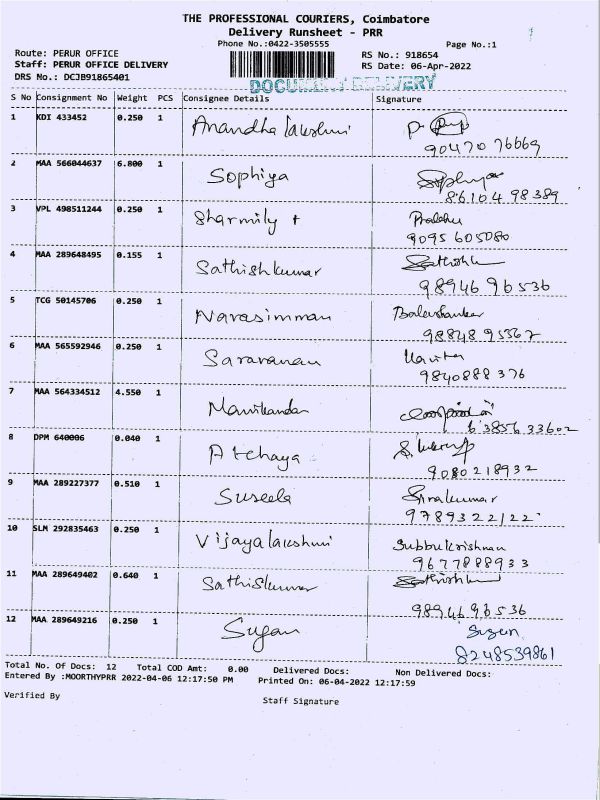 THE PROFESSIONAL COURIERS, Coimbatore
Delivery Runsheet - PRR
Phone No.:0422-3505555
Page No.:1
Route: PERUR OFFICE
RS No.: 918654
Staff: PERUR OFFICE DELIVERY
RS Date: 06-Apr-2022
DRS No.: DCJB91865401
DOCUMENT DELIVERY
S No Consignment No Weight PCS Consignee Details Signature
1 KDI 433452 0.250 1 Anandha lakshmi
90470 76669
2 MAA 566044637 6.800 1 Sophiya Sophiya
86104 98389
3 VPL 498511244 0.250 1 Sharmily t
9095 605080
4 MAA 289648495 0.155 1 Sathishkumar
98946 96536
5 TCG 50145706 0.250 1 Narasimman
98848 95367
6 MAA 565592946 0.250 1 Saravanan
9840888 376
7 MAA 564334512 4.550 1 Manikandan
63856 33602
8 DPM 640006 0.040 1 Atchaya
9080218932
9 MAA 289227377 0.510 1 Suseela Sivakumar
9789322122
10 SLM 292835463 0.250 1 Vijayalakshmi Subbukrishnan
9677888933
11 MAA 289649402 0.640 1 Sathiskumar
98946 96536
12 MAA 289649216 0.250 1 Sugan
8248539861
Total No. Of Docs: 12 Total COD Amt: 0.00 Delivered Docs: Non Delivered Docs:
Entered By :MOORTHYPRR 2022-04-06 12:17:50 PM Printed On: 06-04-2022 12:17:59
Verified By
Staff Signature